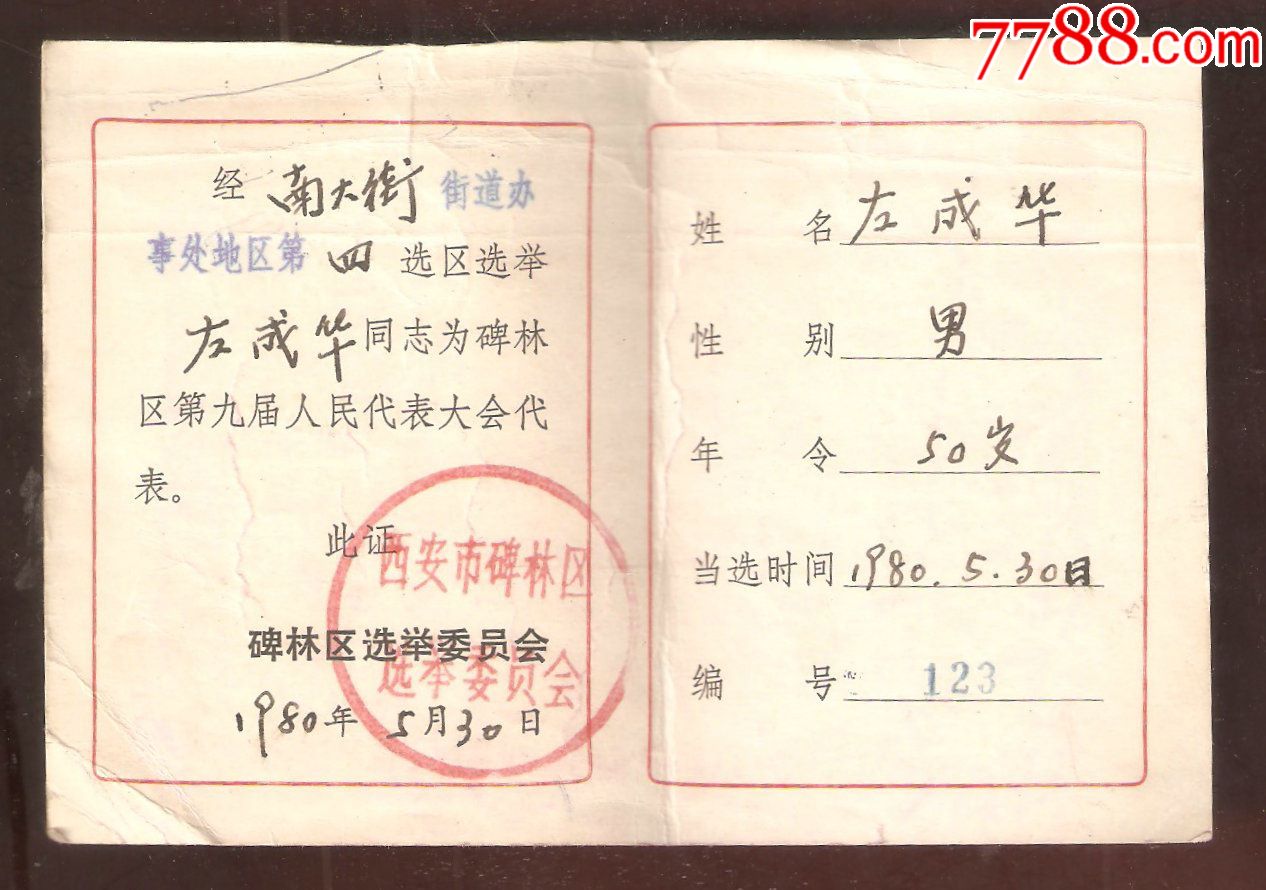 7788.com
经 南大街 街道办
事处地区第 四 选区选举
左成华同志为碑林
区第九届人民代表大会代
表。
此证
西安市碑林区
选举委员会
碑林区选举委员会
1980年 5月30日
姓 名 左成华
性 别 男
年 令 50岁
当选时间 1980.5.30日
编 号 123